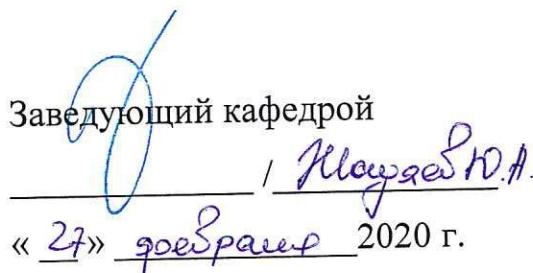 Заведующий кафедрой
/ Ю.А.
« 27» февраля 2020 г.